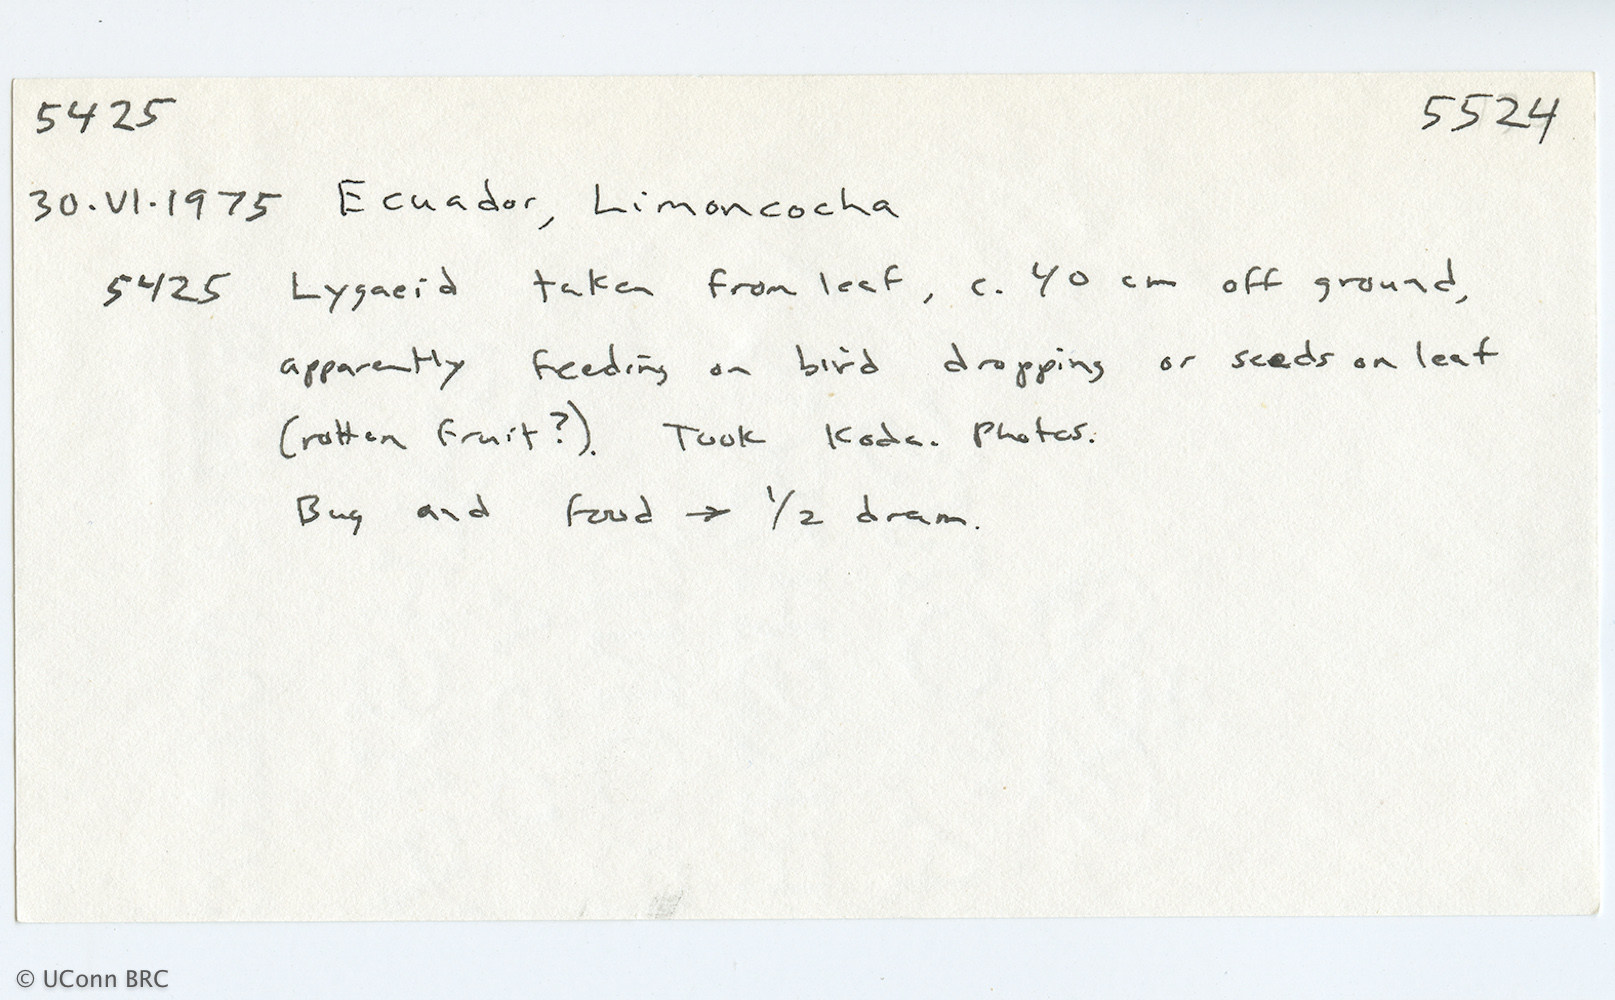 5425 5524
30.VI.1975 Ecuador, Limoncocha
5425 Lygaeid taken from leaf, c. 40 cm off ground,
apparently feeding on bird dropping or seeds on leaf
(rotten fruit?). Took Koda. Photos.
Bug and food → 1/2 dram.
© UConn BRC